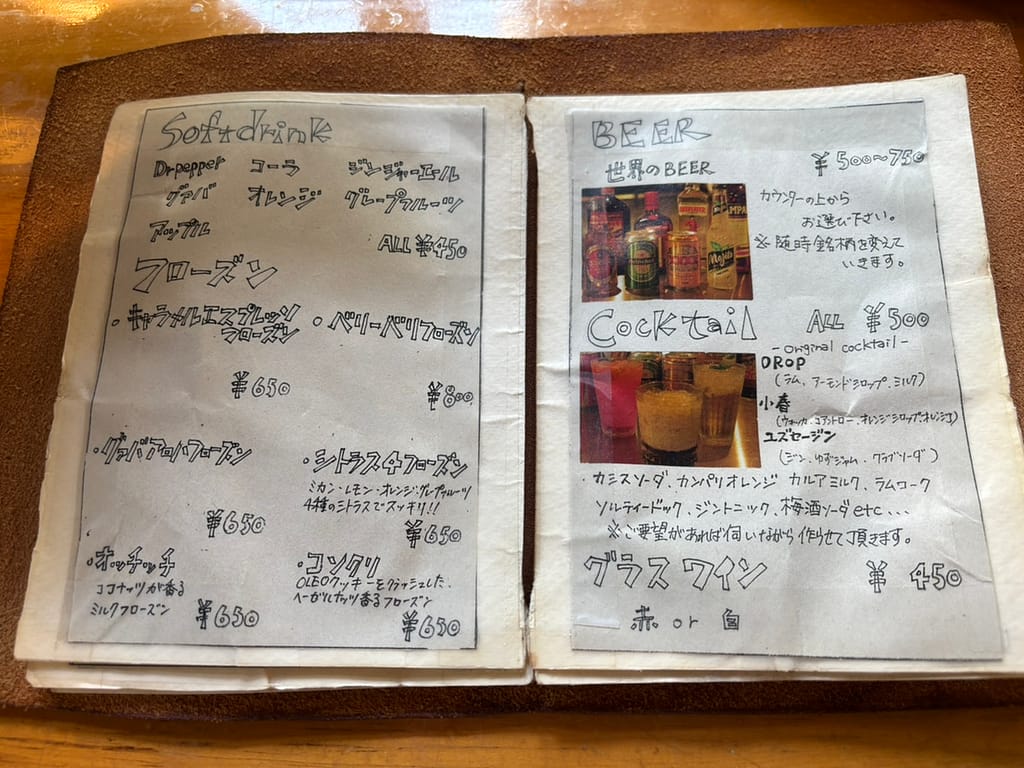 Softdrink
Dr pepper コーラ ジンジャーエール
グァバ オレンジ グレープフルーツ
アップル
ALL ¥450
フローズン
・キャラメルエスプレッソ
フローズン
¥650
・ベリーベリフローズン
¥800
・グァバアロハフローズン
¥650
・シトラス4フローズン
ミカン・レモン・オレンジ・グレープフルーツ
4種のシトラスでスッキリ!!
¥650
・オッチッチ
ココナッツが香る
ミルクフローズン
¥650
・コンクリ
OLEOクッキーをクラッシュした、
ヘーゼルナッツ香るフローズン
¥650
BEER
世界のBEER ¥500~750
カウンターの上から
お選び下さい。
※随時銘柄を変えて
いきます。
Cocktail ALL ¥500
- Original cocktail -
DROP
(ラム、アーモンドシロップ、ミルク)
小春
(ウォッカ、コアントロー、オレンジシロップ、オレンジJ)
ユズセージン
(ジン、ゆずジャム、クラブソーダ)
・カシスソーダ、カンパリオレンジ カルアミルク、ラムコーク
ソルティードック、ジントニック、梅酒ソーダetc...
※ご要望があれば伺いながら作らせて頂きます。
グラスワイン ¥450
赤 or 白